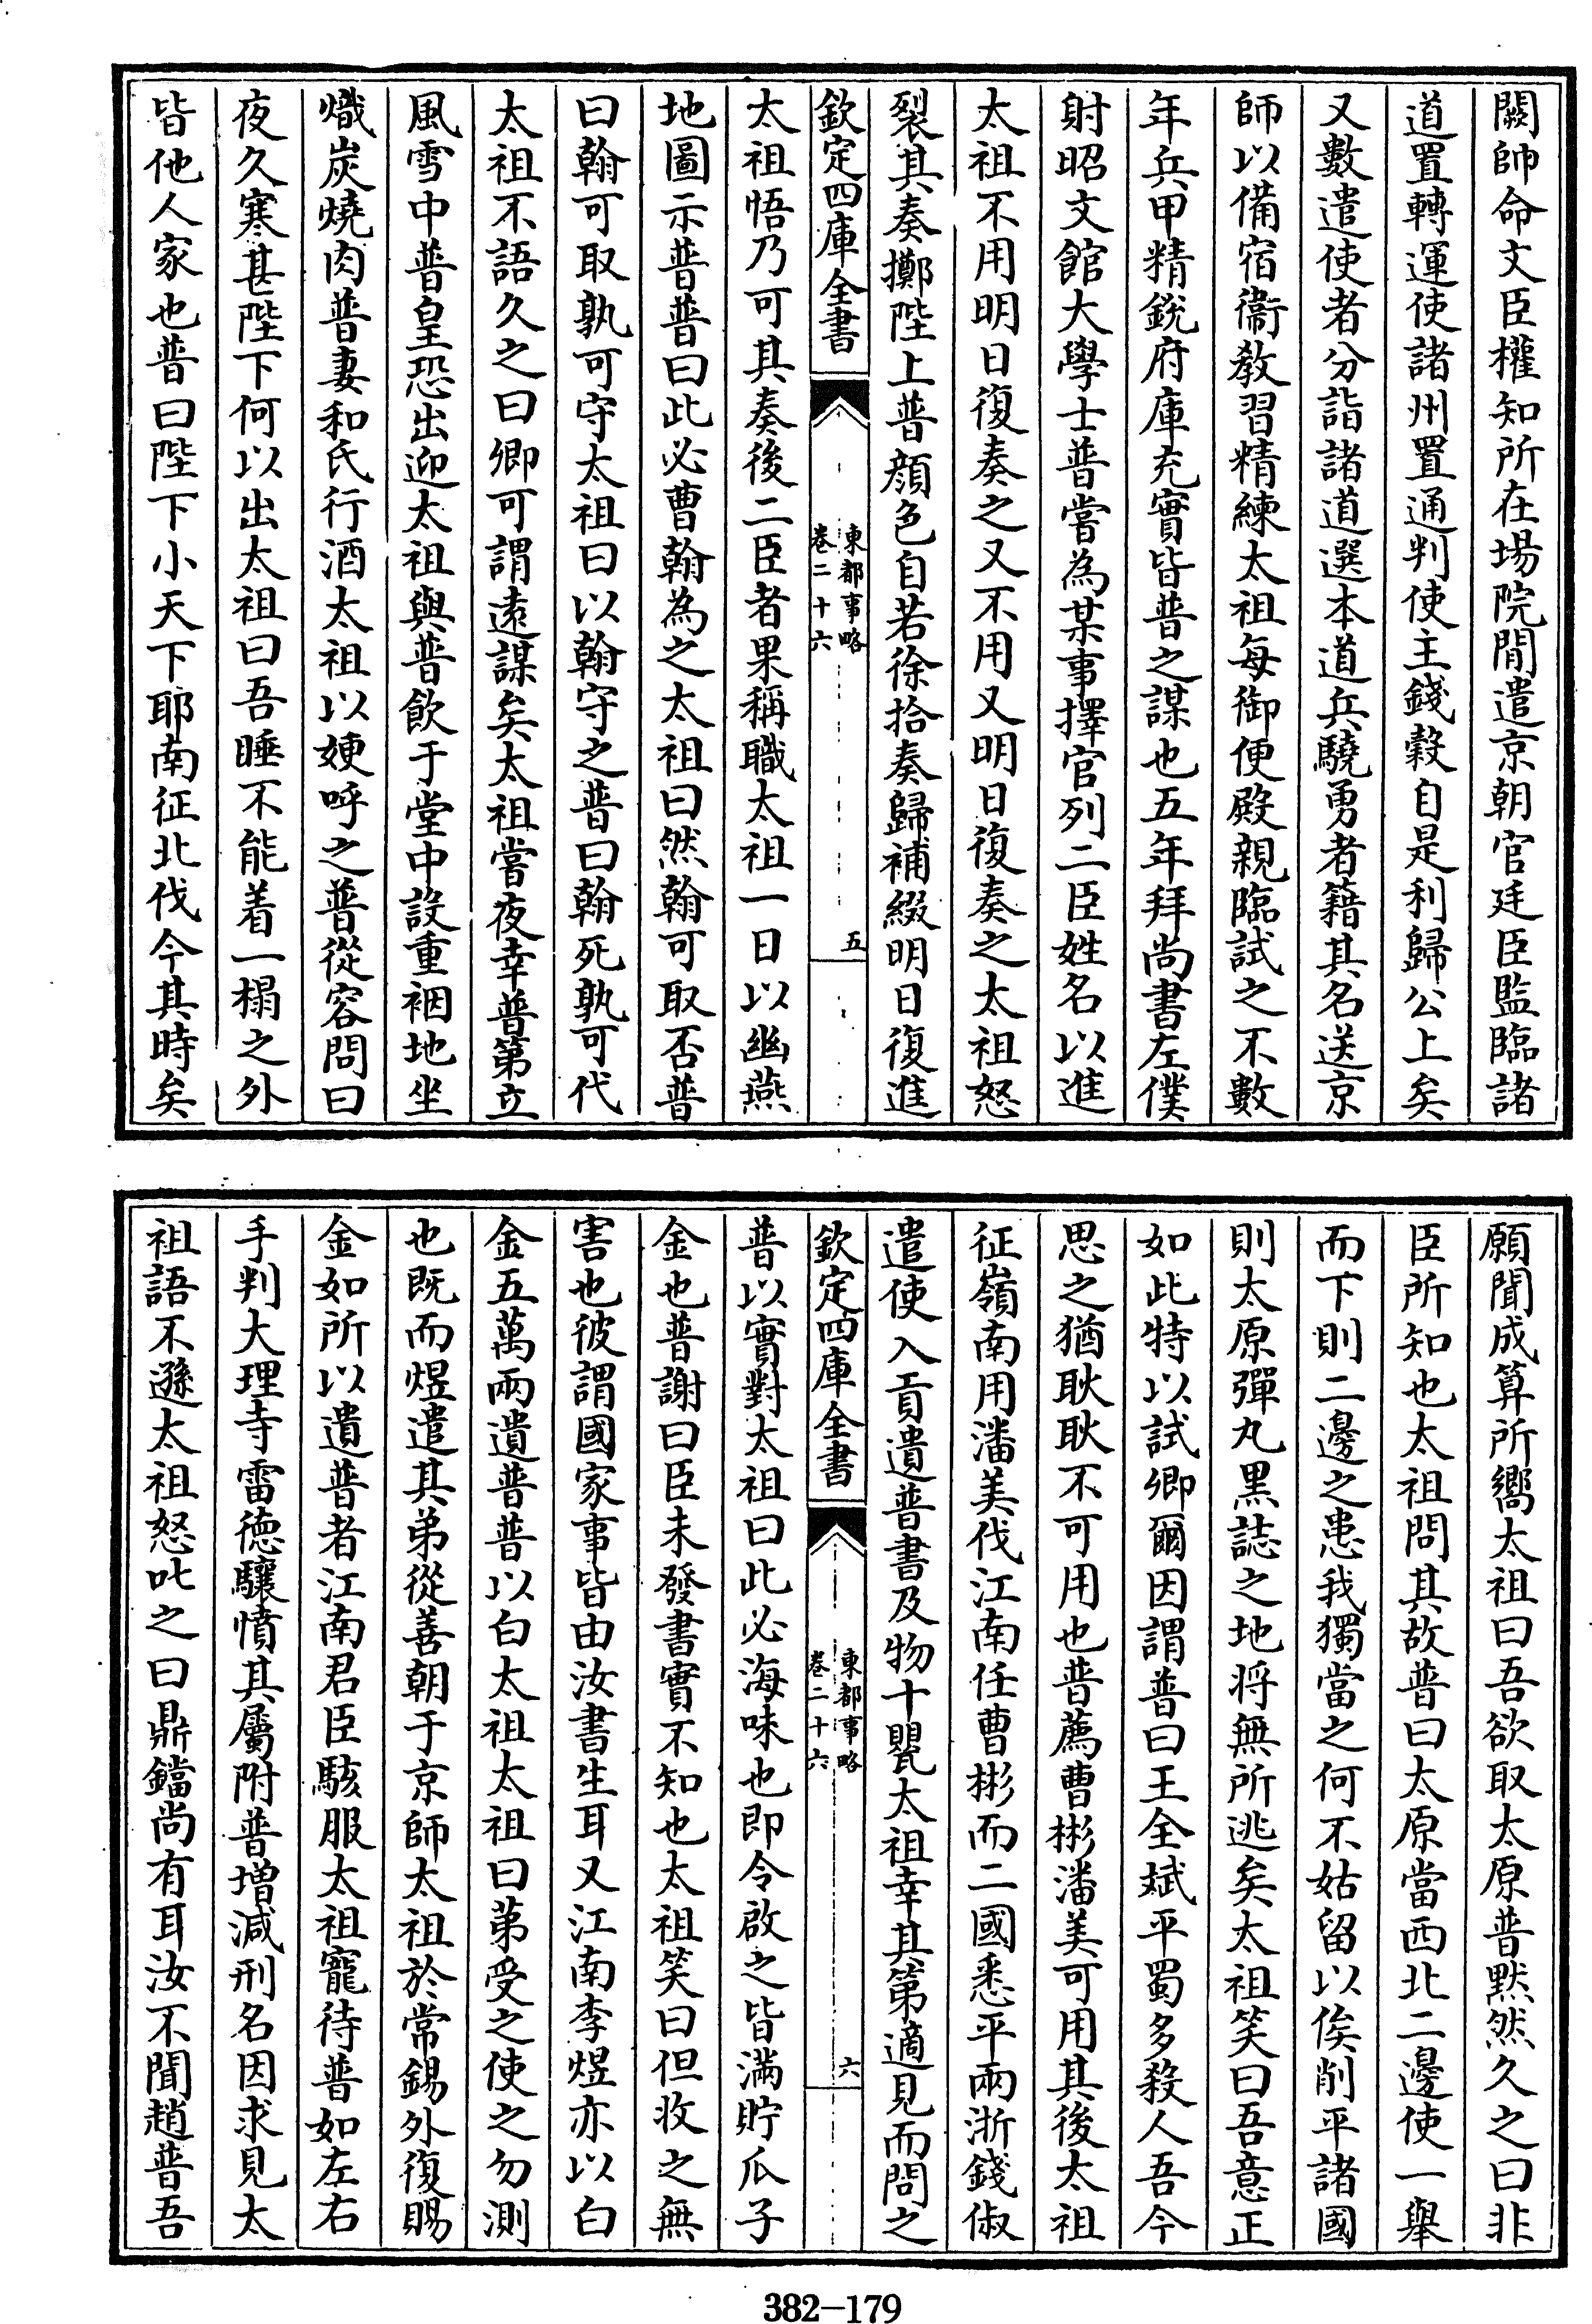 闕帥命文臣權知所在場院間遣京朝官廷臣監臨諸
道置轉運使諸州置通判使主錢穀自是利歸公上矣
又數遣使者分詣諸道選本道兵驍勇者籍其名送京
師以備宿衞教習精練太祖每御便殿親臨試之不數
年兵甲精銳府庫充實皆普之謀也五年拜尚書左僕
射昭文館大學士普嘗為某事擇官列二臣姓名以進
太祖不用明日復奏之又不用又明日復奏之太祖怒
裂其奏擲陛上普顔色自若徐拾奏歸補綴明日復進
欽定四庫全書
東都事略
卷二十六
五
太祖悟乃可其奏後二臣者果稱職太祖一日以幽燕
地圖示普普曰此必曹翰為之太祖曰然翰可取否普
曰翰可取孰可守太祖曰以翰守之普曰翰死孰可代
太祖不語久之曰卿可謂遠謀矣太祖嘗夜幸普第立
風雪中普皇恐出迎太祖與普飲于堂中設重裀地坐
熾炭燒肉普妻和氏行酒太祖以㛐呼之普從容問曰
夜久寒甚陛下何以出太祖曰吾睡不能着一榻之外
皆他人家也普曰陛下小天下耶南征北伐今其時矣
願聞成算所嚮太祖曰吾欲取太原普黙然久之曰非
臣所知也太祖問其故普曰太原當西北二邊使一舉
而下則二邊之患我獨當之何不姑留以俟削平諸國
則太原彈丸黒誌之地將無所逃矣太祖笑曰吾意正
如此特以試卿爾因謂普曰王全斌平蜀多殺人吾今
思之猶耿耿不可用也普薦曹彬潘美可用其後太祖
征嶺南用潘美伐江南任曹彬而二國悉平兩浙錢俶
遣使入貢遺普書及物十甖太祖幸其第適見而問之
欽定四庫全書
東都事略
卷二十六
六
普以實對太祖曰此必海味也即令啟之皆滿貯瓜子
金也普謝曰臣未發書實不知也太祖笑曰但收之無
害也彼謂國家事皆由汝書生耳又江南李煜亦以白
金五萬兩遺普普以白太祖太祖曰第受之使之勿測
也既而煜遣其弟從善朝于京師太祖於常錫外復賜
金如所以遺普者江南君臣駭服太祖寵待普如左右
手判大理寺雷德驤憤其屬附普增減刑名因求見太
祖語不遜太祖怒叱之曰鼎鐺尚有耳汝不聞趙普吾
382—179